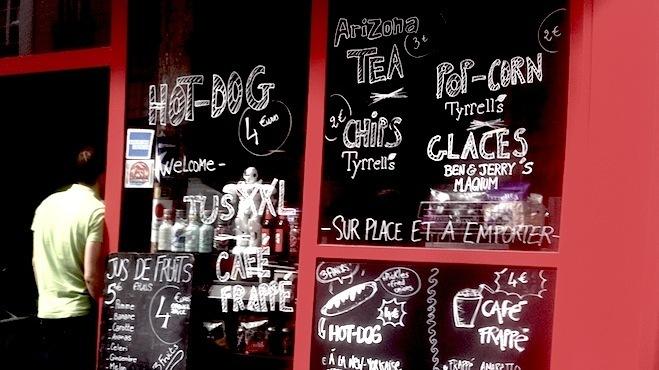 HOT-DOG
4 Euros
-Welcome-
JUS XXL
CAFÉ
FRAPPÉ
ARiZONA
TEA
3€
2€
CHiPS
Tyrrells
2€
POP-CORN
Tyrrells
GLACES
BEN & JERRY'S
MAGNUM
-SUR PLACE ET A EMPORTER-
JUS DE FRUiTS
FRAiS
5€
4 Euros
Pomme
Banane
Carotte
Ananas
Celeri
Gingembre
Melon
3 Fruits
4€
HOT-DOG
à LA NEW-YORKAISE
4€
CAFÉ
FRAPPÉ
FRAPPÉ AMARETTO